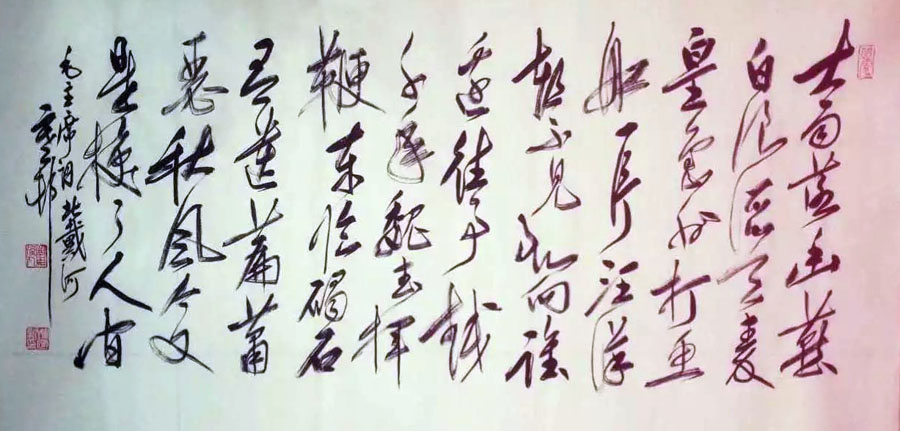 大雨落幽燕
白浪滔天秦
皇岛外打鱼
船一片汪洋
都不见知向谁
边往事越
千年魏武挥
鞭东临碣石
有遗篇萧
瑟秋风今又
是换了人间
毛主席词北戴河